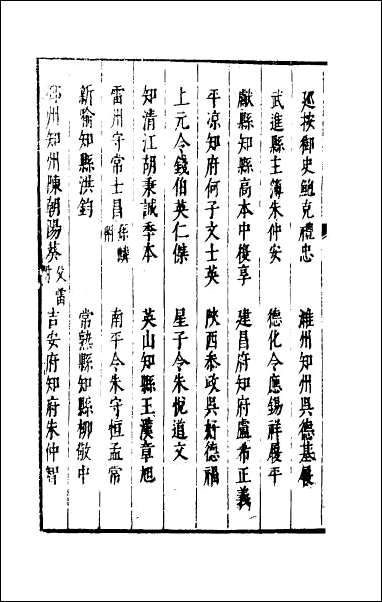 廵按御史鮑克禮忠　濰州知州吳德基履
武進縣主簿朱仲安　德化令應錫祥履平
獻縣知縣高本中復亨　建昌府知府盧希正義
平凉知府何子文士英　陜西叅政吳好德福
上元令錢伯英仁傑　星子令朱悅道文
知清江胡秉誠季本　英山知縣王漢章旭
雷州守常士昌　南平令朱守恒孟常
新喻知縣洪鈞　常熟縣知縣柳敬中
州知州陳朝陽葵父雷　吉安府知府朱仲智